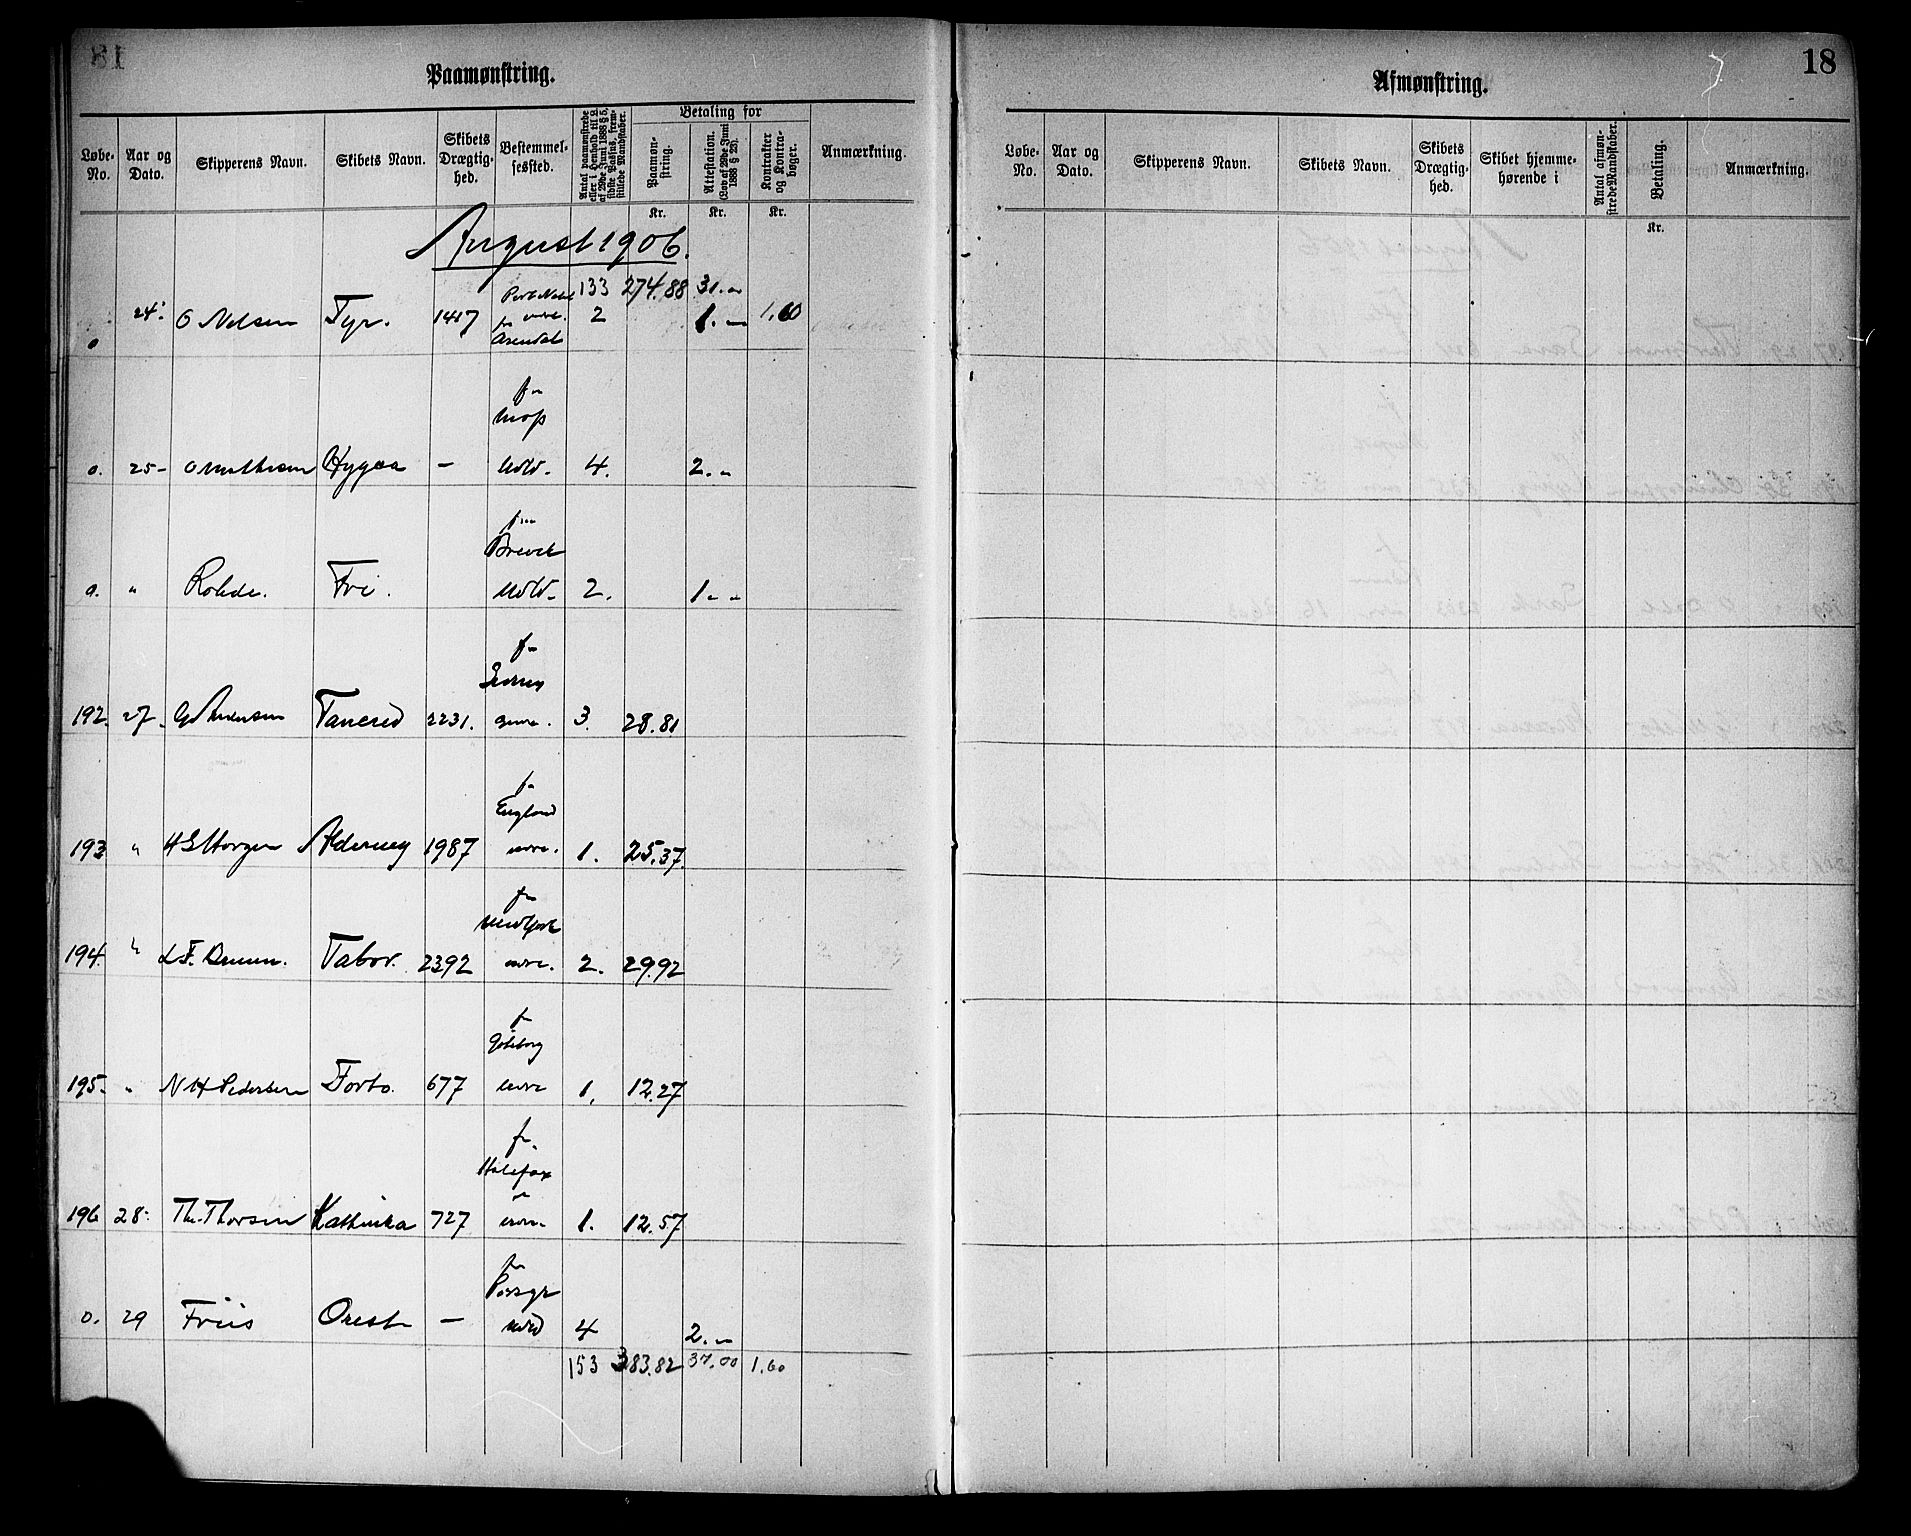 18
Paamønstring.
Løbe-No. Aar og Dato. Skipperens Navn. Skibets Navn. Skibets Drægtighed. Bestemmelsessted. Antal paamønstrede eller i Henhold til L. af 29de Juni 1888 § 5, sidste Passus, fremstillede Mandskaber. Betaling for Paamønstring. Attestation. (Lov af 29de Juni 1888 § 23). Kontrakter og Kontrabøger. Anmærkning.
Kr. Kr. Kr.
August 1906.
133 274.88 31.-
o 24. O Nelsen Tyr. 1417 fra Arendal 2 1.- 1.60
fra
Moss
o. 25- O Mathesen Hygea - Udld. 4. 2.-
fra
Brevik
o. " Rohde. Fri. Udld. 2. 1.-
fra
192. 27. Andersen Tancred 2231. 3. 28.81
fra
England
193 " Alderney 1987 1. 25.37
fra
194. " Tabor. 2392 2. 29.92
fra
Göteborg
195. " N H Pedersen Forto. 677 1. 12.27
fra
Halifax
196 28. Th. Thorsen Kathinka 727 1. 12.57
fra
Porsgr
o. 29 Friis Orest - Udld 4 2.-
153 383.82 37.00 1.60
18
Afmønstring.
Løbe-No. Aar og Dato. Skipperens Navn. Skibets Navn. Skibets Drægtighed. Skibet hjemmehørende i Antal afmønstrede Mandskaber. Betaling. Anmærkning.
Kr.